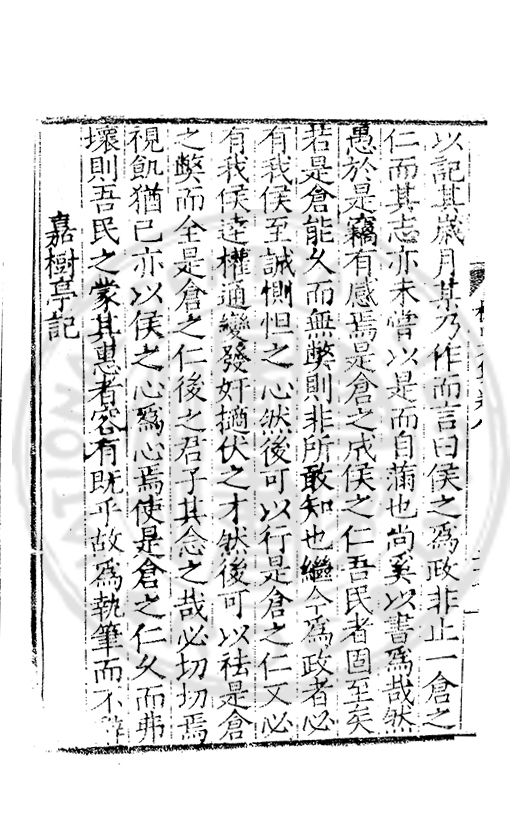 以記其歲月某乃作而言曰侯之爲政非止一倉之
仁而其志亦未嘗以是而自滿也尚奚以書爲哉然
愚於是竊有感焉是倉之成侯之仁吾民者固至矣
若是倉能久而無弊則非所敢知也繼今爲政者必
有我侯至誠惻怛之心然後可以行是倉之仁又必
有我侯達權通變發奸擿伏之才然後可以祛是倉
之弊而全是倉之仁後之君子其念之哉必切切焉
視飢猶已亦以侯之心爲心焉使是倉之仁久而弗
壞則吾民之蒙其惠者容有既乎故爲執筆而不辭
嘉樹亭記